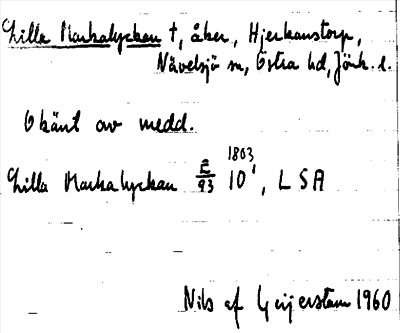 Lilla Markalyckan †, åker, Hjerkanstorp,
Nävelsjö sn, Östra hd, Jönk. l.
Okänt av medd.
Lilla Markalyckan E/93 10' 1803, LSA
Nils af Geijerstam 1960